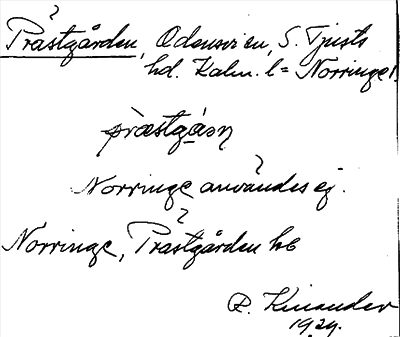 ?
Prästgården, Odensvi sn, S. Tjusts
hd. Kalm. l = Norringe!
præstgá̱ɔn
Norringe användes ej.
?
Norringe, Prästgården hb
R. Kinander
1929.